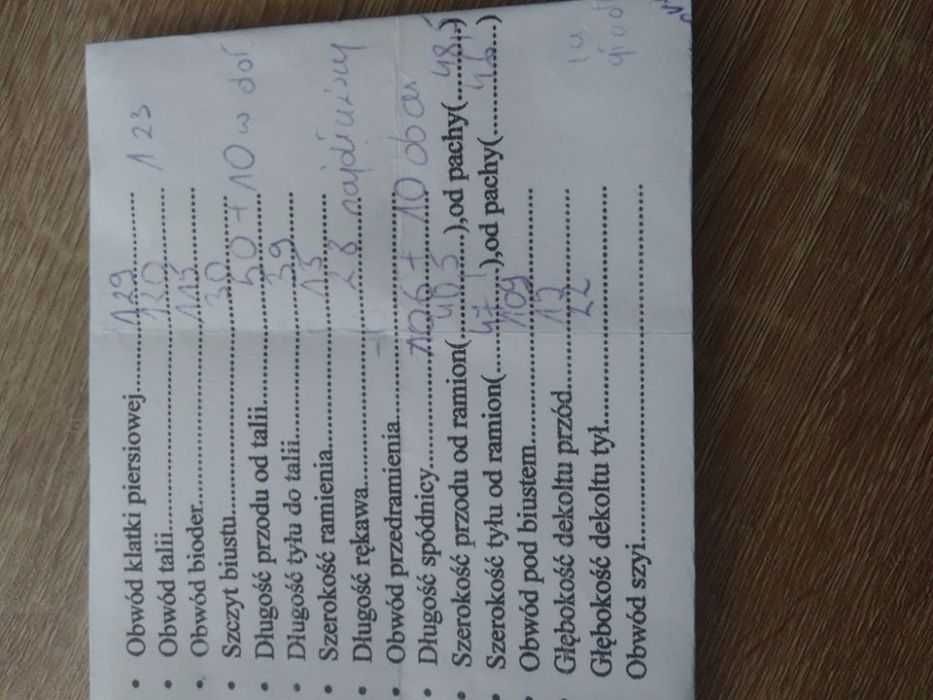 • Obwód klatki piersiowej..........129..........
• Obwód talii..........120.......... 123
• Obwód bioder..........113..........
• Szczyt biustu..........30..........
• Długość przodu od talii..........50 + 10 w dół
• Długość tyłu do talii..........39..........
• Szerokość ramienia..........13..........
• Długość rękawa..........28
• Obwód przedramienia....................
• Długość spódnicy..........106 + 10
• Szerokość przodu od ramion(..........),od pachy(..........)
• Szerokość tyłu od ramion(..........47..........),od pachy(..........)
• Obwód pod biustem..........109..........
• Głębokość dekoltu przód....................
• Głębokość dekoltu tył..........22..........
• Obwód szyi....................